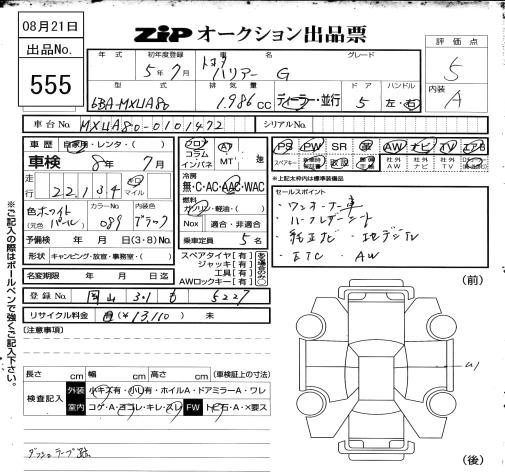 08月21日
出品No.
555
ZiP オークション出品票
評価点
5
内装
A
年式 初年度登録 車名 グレード
5年7月 トヨタ ハリアー G
型式 排気量 ドア ハンドル
6BA-MXUA80 1,986cc ディーラー・並行 5 左・右
車台No. MXUA80-0101472 シリアルNo.
車歴 自家用・レンタ・( )
車検 8年7月
走行 22,134 km マイル
フロア コラム インパネ A7 MT 速
冷房 無・C・AC・AAC・WAC
燃料 ガソリン・軽油・( )
色 ホワイトパール (元色) カラーNo. 089 内装色 ブラック
Nox 適合・非適合
予備検 年 月 日(3・8)No.
乗車定員 5名
形状 キャンピング・放宣・事務室・( )
スペアタイヤ[有]
ジャッキ[有]
工具[有]
AWロックキー[有]
名変期限 年 月 日迄
登録No. 岡山 31 5227
リサイクル料金 (¥13,110) 未
(注意事項)
PS PW SR 革 AW ナビ TV エアB
スペアキー 取説 社外AW 社外ナビ 社外TV
*上記太わ枠内は標準装備品
セールスポイント
・ワンオーナー車
・ハーフレザーシート
・純正ナビ・地デジTV
・ETC ・AW
(前)
(後)
長さ cm 幅 cm 高さ cm (車検証上の寸法)
検査記入 外装 小キズ有・小凹有・ホイルA・ドアミラーA・ワレ
室内 コゲ・A・ヨゴレ・キレ・スレ FW トビ石・A・×要ス
ダッシュテープ跡
※ご記入の際はボールペンで強くご記入下さい。